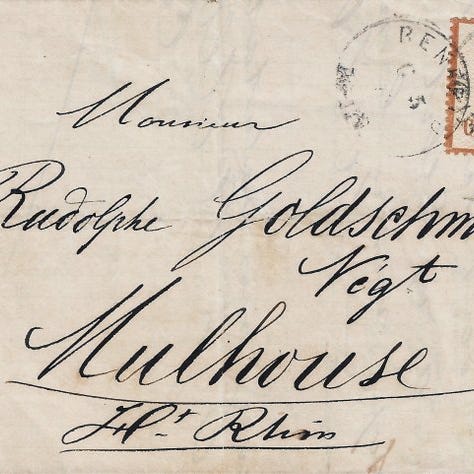 Monsieur
Rudolphe Goldschm
Négt
Mulhouse
Ht. Rhin